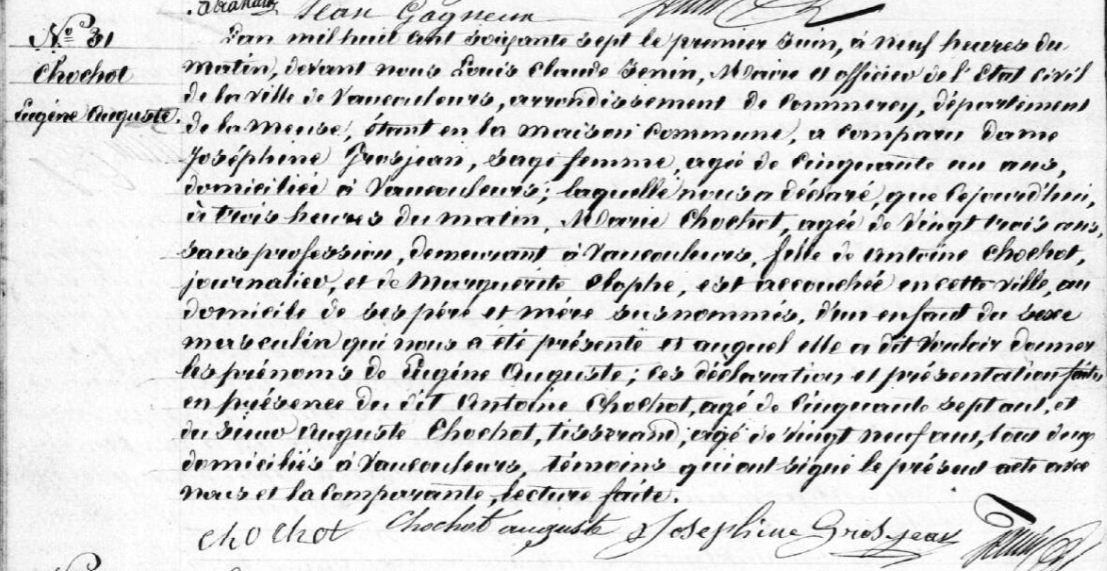 Jean Gagneux
Nº 31
Chochot
Eugène Auguste.
L'an mil huit cent soixante sept le premier Juin, à neuf heures du
matin, devant nous Louis Claude Jenin, Maire et officier de l'Etat civil
de la ville de Vaucouleurs, arrondissement de Commercy, département
de la Meuse, étant en la maison commune, a comparu dame
Joséphine Grosjean, sage femme, agée de Cinquante un ans,
domiciliée à Vaucouleurs; laquelle nous a déclaré, que cejourd'hui,
à trois heures du matin, Marie Chochot, agée de vingt trois ans,
sans profession, demeurant à Vaucouleurs, fille de Antoine Chochot,
journalier, et de Marguerite Clophe, est accouchée en cette ville, au
domicile de ses père et mère susnommés, d'un enfant du sexe
masculin qui nous a été présenté et auquel elle a dit vouloir donner
les prénoms de Eugène Auguste; ces déclaration et présentation faites
en présence du dit Antoine Chochot, agé de Cinquante sept ans, et
du sieur Auguste Chochot, tisserand, agé de vingt neuf ans, tous deux
domiciliés à Vaucouleurs, témoins qui ont signé le présent acte avec
nous et la comparante, lecture faite.
chochot Chochot auguste Josephine Grosjean Jenin